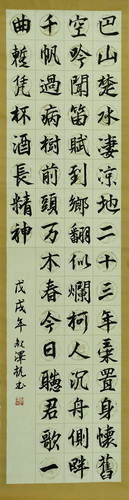 巴山楚水淒涼地二十三年棄置身懷舊
空吟聞笛賦到鄉翻似爛柯人沉舟側畔
千帆過病樹前頭萬木春今日聽君歌一
曲暫凭杯酒長精神
戊戌年